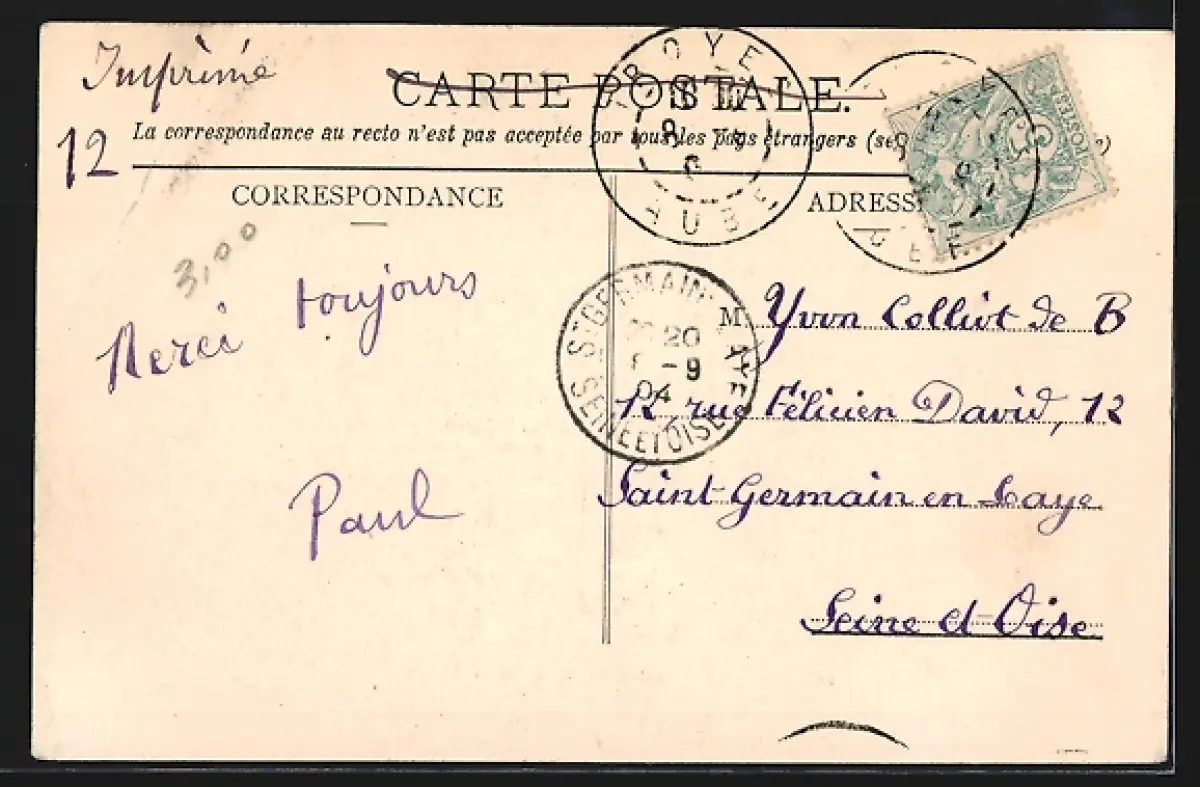 Imprimé
CARTE POSTALE.
12
La correspondance au recto n'est pas acceptée par tous les pays étrangers
CORRESPONDANCE
ADRESSE
3,00
Merci toujours
Paul
M Yvon Colliot de B
12, rue Félicien David, 12
Saint-Germain en Laye
Seine et-Oise
AUBE
ST GERMAIN LAYE
20
-9
04
SEINE ET OISE
POSTES